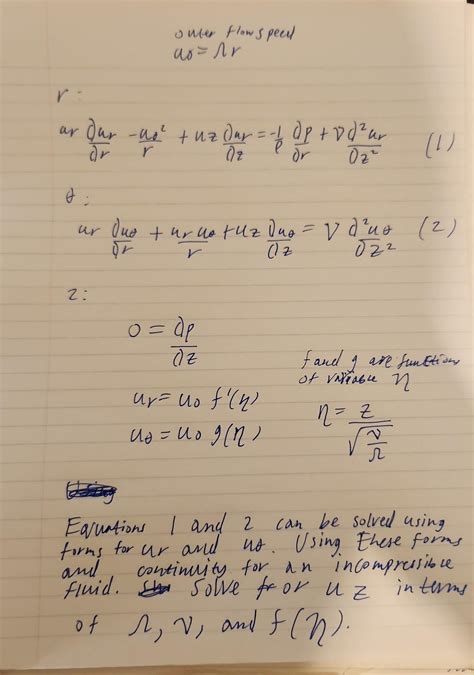 outer flow speed
u₀ = Ωr
r:
ur ∂ur/∂r - uθ²/r + uz ∂ur/∂z = -1/ρ ∂p/∂r + ν ∂²ur/∂z² (1)
θ:
ur ∂uθ/∂r + ur uθ/r + uz ∂uθ/∂z = ν ∂²uθ/∂z² (2)
z:
0 = ∂p/∂z
f and g are functions
of variable η
ur = u₀ f'(η)
η = z/√(ν/Ω)
uθ = u₀ g(η)
Equations 1 and 2 can be solved using
forms for ur and uθ. Using these forms
and continuity for an incompressible
fluid. Solve for uz in terms
of Ω, ν, and f(η).